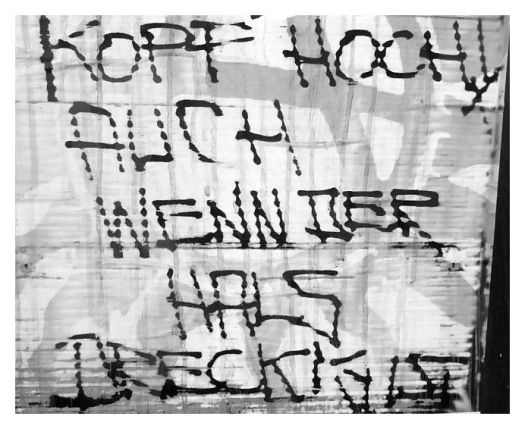 KOPF HOCH
AUCH
WENN DER
HALS
DRECKIG IST